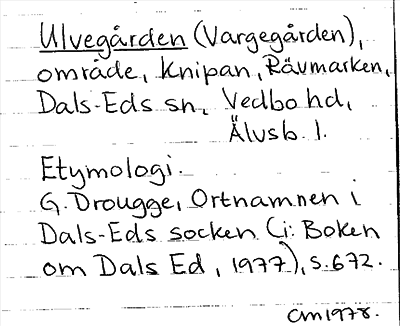 Ulvegården (Vargegården),
område, Knipan, Rävmarken,
Dals-Eds sn, Vedbo hd,
Älvsb. l.
Etymologi.
G. Drougge, Ortnamnen i
Dals-Eds socken (i: Boken
om Dals Ed, 1977), s. 672.
CM 1978.